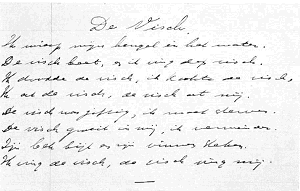 De Visch.
Ik wierp mijn hengel in het water.
De visch beet, en ik ving den visch.
Ik doodde de visch, ik kookte de visch,
Ik at de visch, de visch at mij.
De visch was giftig, ik moet sterven.
De visch groeit in mij, ik verminder.
Zijn bek bijt en zijn vinnen steken.
Ik ving de visch, de visch ving mij.